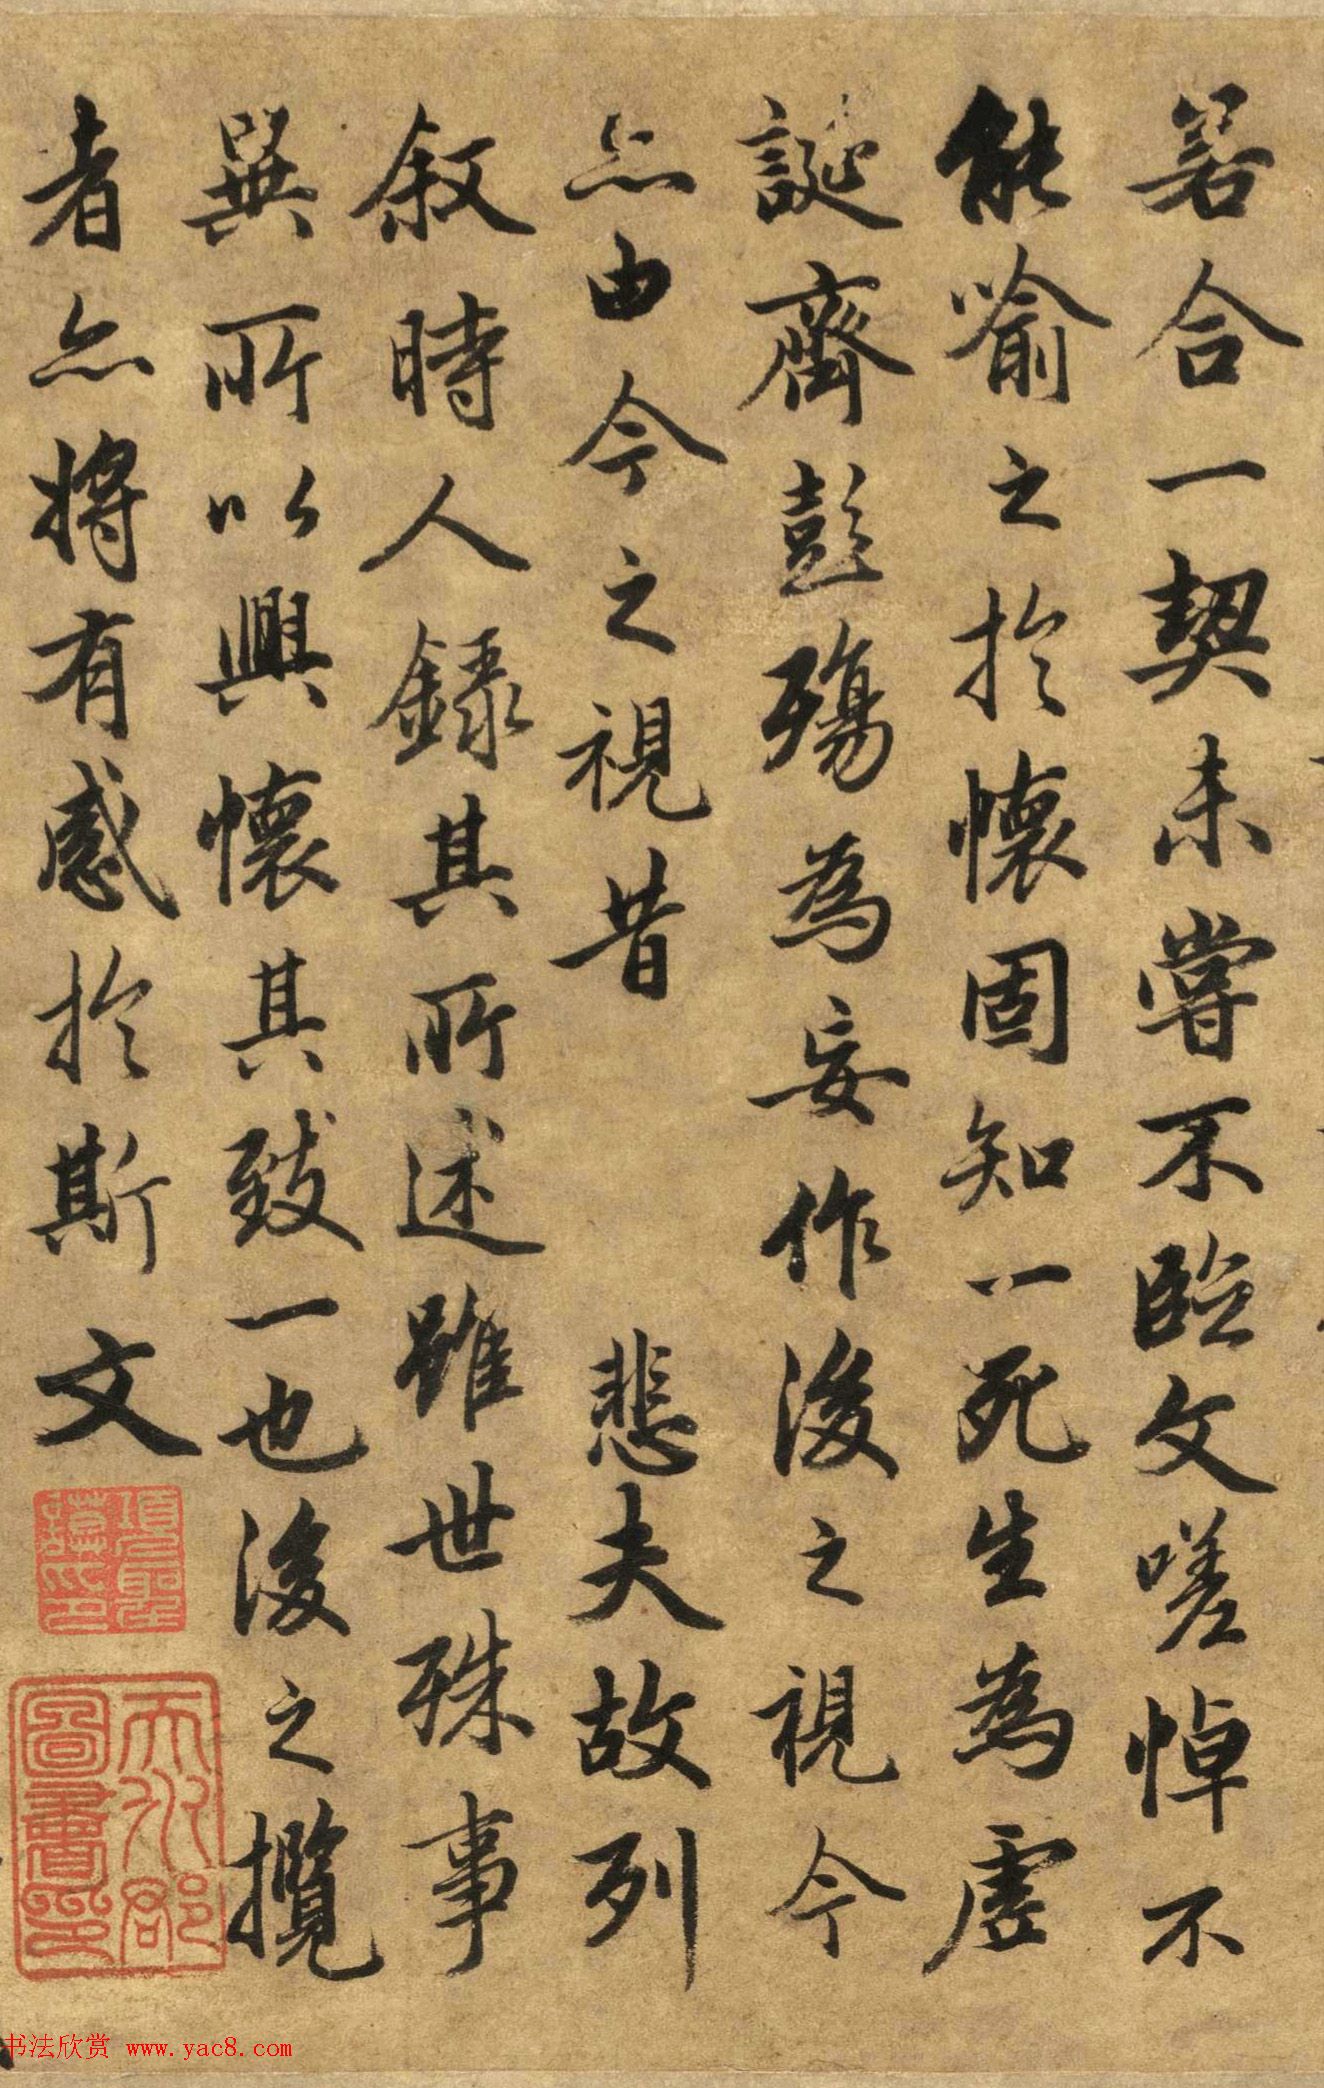 若合一契未嘗不臨文嗟悼不
能喻之於懷固知一死生為虛
誕齊彭殤為妄作後之視今
亦由今之視昔 悲夫故列
叙時人錄其所述雖世殊事
異所以興懷其致一也後之攬
者亦將有感於斯文
項聖謨印
天水郡圖書印
书法欣赏 www.yac8.com